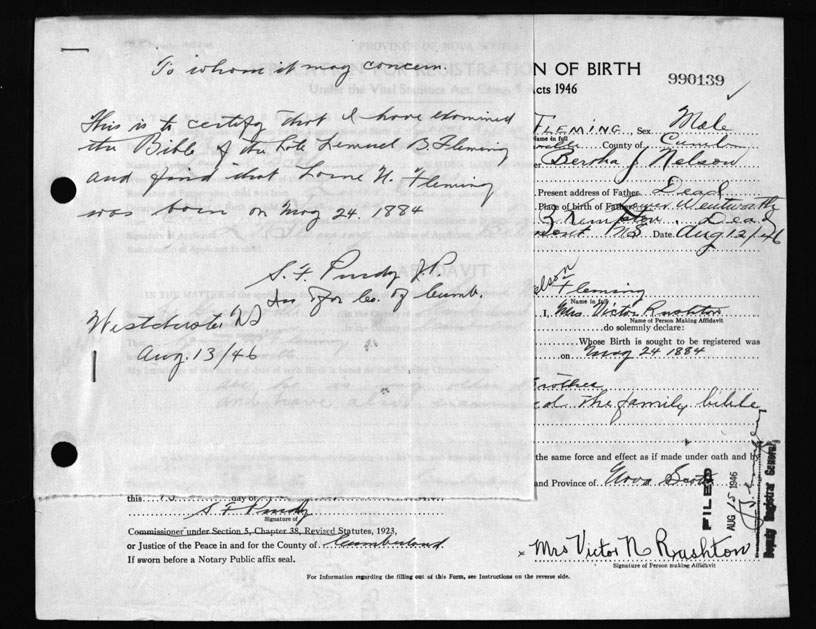 To whom it may concern.
This is to certify that I have examined
the Bible of the late Lemuel B. Fleming
and find that Lorne N. Fleming
was born on May 24. 1884
S. F. Purdy J.P.
In & for Co. of Cumb.
Westchester NS
Aug. 13/46
N OF BIRTH
990139
Acts 1946
FLEMING Sex Male
Name in full
County of Cumb
Bertha J Nelson
Present address of Father Dead
Place of birth of Father Wentworth
Dead
NS Date Aug 12/46
elson Fleming
Name in full
I, Mrs. Victor Rushton
Name of Person Making Affidavit
do solemnly declare:
Whose Birth is sought to be registered was
on May 24 1884
Brother
ed the family bible
the same force and effect as if made under oath and by
and Province of Nova Scotia
FILED
AUG 15 1946
Deputy Registrar General
this day of
S F Purdy
Signature of
Commissioner under Section 5, Chapter 38, Revised Statutes, 1923,
or Justice of the Peace in and for the County of Cumberland
If sworn before a Notary Public affix seal.
x Mrs Victor N Rushton
Signature of Person making Affidavit
For Information regarding the filling out of this Form, see Instructions on the reverse side.